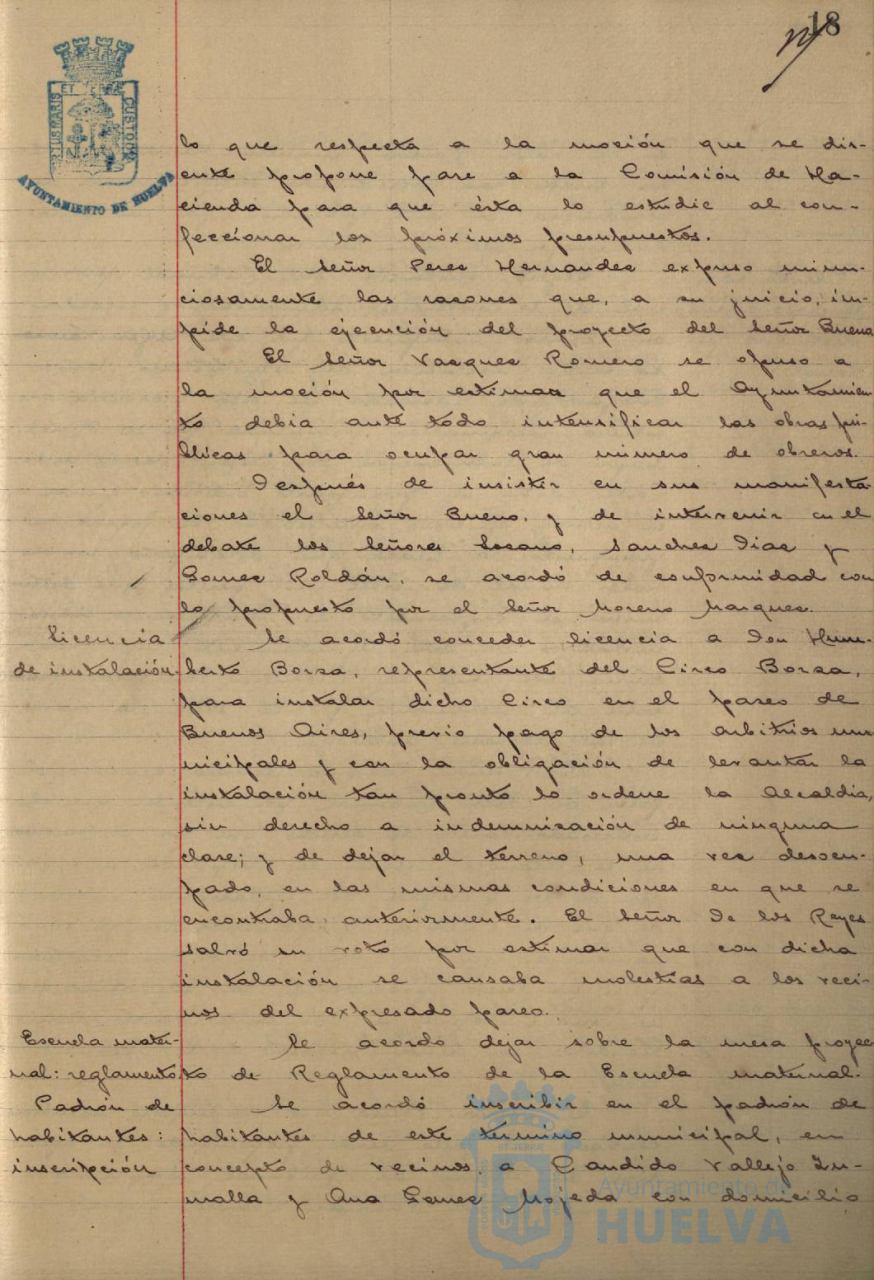 18
PORTUS MARIS ET TERRAE CUSTODIA
AYUNTAMIENTO DE HUELVA
lo que respecta a la moción que se dis-
cute propone pase a la Comisión de Ha-
cienda para que ésta lo estudie al con-
feccionar los próximos presupuestos.
El Señor Perez Hernandez expuso minu-
ciosamente las razones que, a su juicio, im-
pide la ejecución del proyecto del Señor Bueno
El Señor Vazquez Romero se opuso a
la moción por estimar que el Ayuntamien
to debia ante todo intensificar las obras pú-
blicas para ocupar gran número de obreros.
Después de insistir en sus manifesta
ciones el Señor Bueno, y de intervenir en el
debate los Señores Lozano, Sanchez Diaz y
Gomez Roldán, se acordó de conformidad con
lo propuesto por el Señor Moreno Marquez.
Licencia
de instalación.
Se acordó conceder licencia a Don Hum-
berto Borza, representante del Circo Borza,
para instalar dicho Circo en el paseo de
Buenos Aires, previo pago de los arbitrios mu-
nicipales y con la obligación de levantar la
instalación tan pronto lo ordene la Alcaldia,
sin derecho a indemnización de ninguna
clase; y de dejar el terreno, una vez desocu-
pado, en las mismas condiciones en que se
encontraba anteriormente. El Señor De los Reyes
salvó su voto por estimar que con dicha
instalación se causaba molestias a los veci-
nos del expresado paseo.
Escuela mater-
nal: reglamento
Se acordo dejar sobre la mesa proyec
to de Reglamento de la Escuela maternal.
Padrón de
habitantes:
inscripción
Se acordó inscribir en el padrón de
habitantes de este término municipal, en
concepto de vecinos, a Candido Vallejo Zu-
malla y Ana Gomez Mojeda con domicilio
Ayuntamiento de
HUELVA